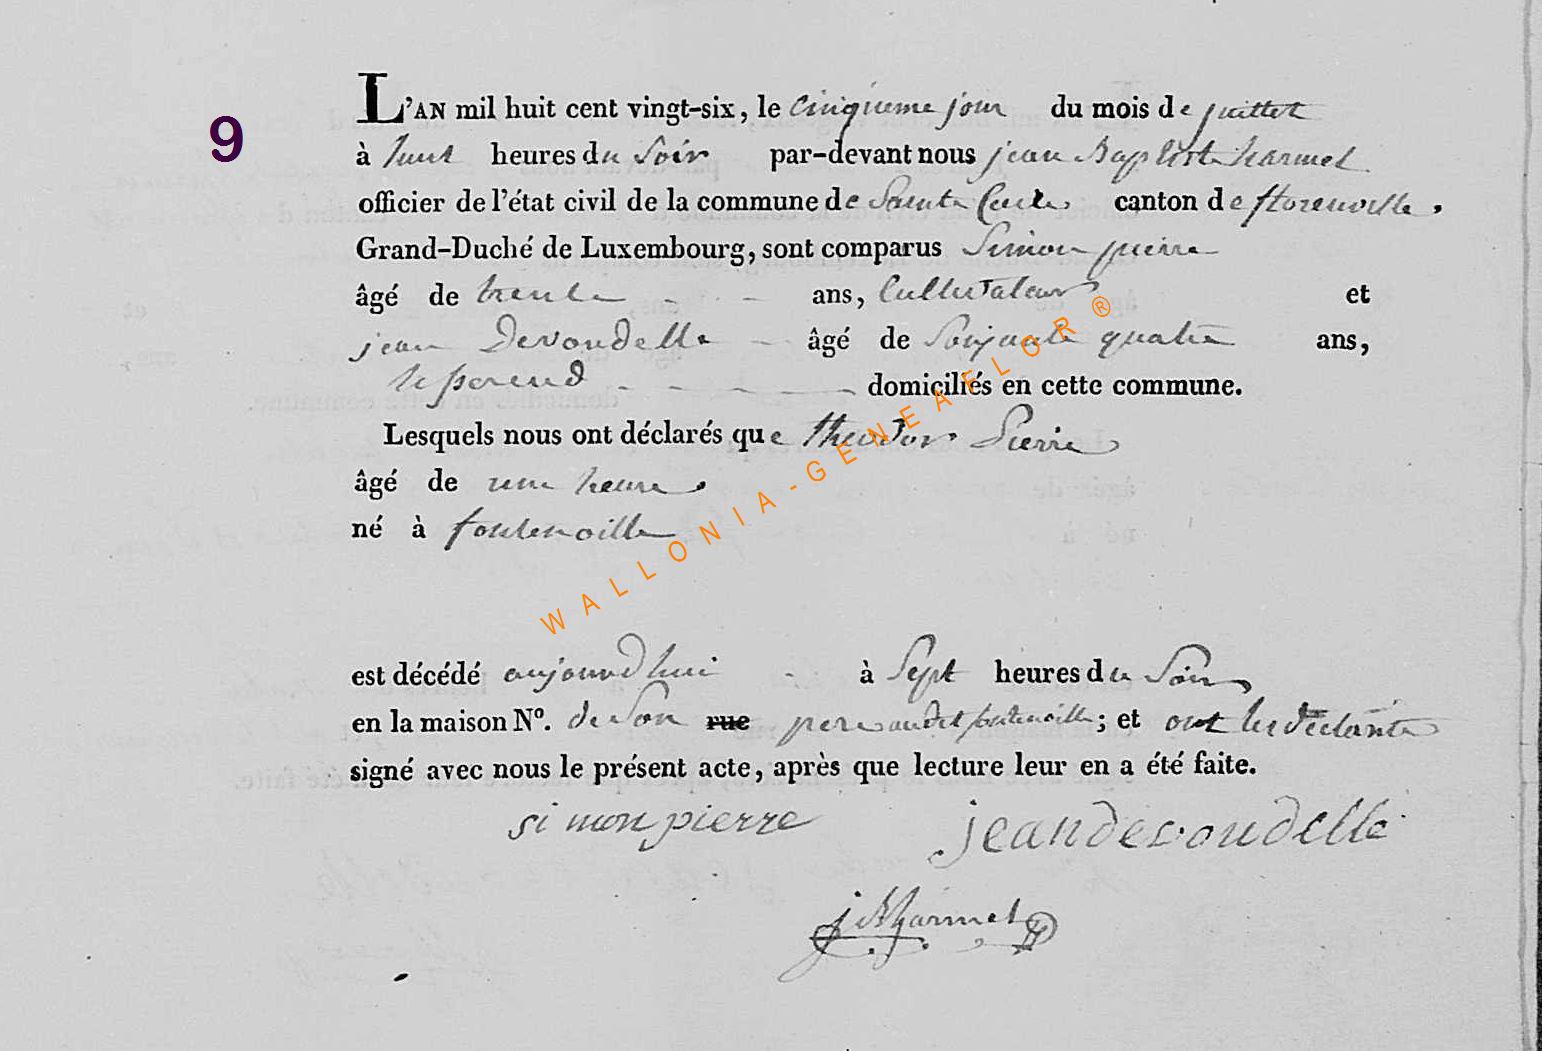 9
L'AN mil huit cent vingt-six, le cinquieme jour du mois de juillet
à huit heures du soir par-devant nous jean Baptiste harmel
officier de l'état civil de la commune de Sainte Cecile canton de florenville,
Grand-Duché de Luxembourg, sont comparus Simon pierre
âgé de trente ans, Cultivateur et
jean Devoudelle âgé de soixante quatre ans,
domiciliés en cette commune.
Lesquels nous ont déclarés que theodor Pierre
âgé de une heure
né à fontenoille
est décédé aujourd'hui à Sept heures du Soir
en la maison Nº. de son rue pere audit fontenoille ; et ont les déclarants
signé avec nous le présent acte, après que lecture leur en a été faite.
simon pierre jean devoudelle
jBharmel
WALLONIA-GENEAFLOR ®